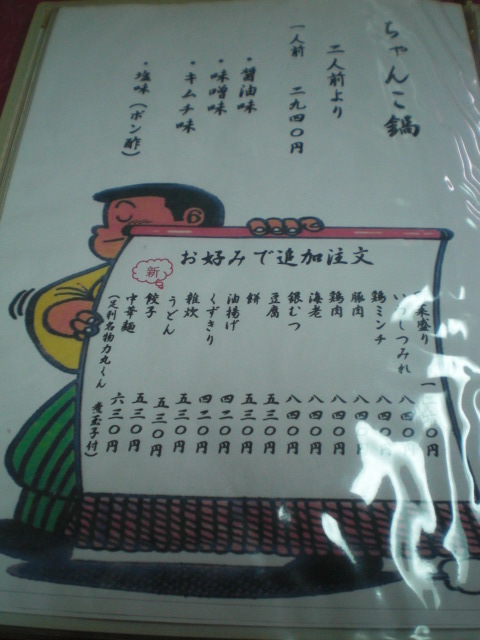 ちゃんこ鍋
二人前より
一人前 二九四〇円
・醤油味
・味噌味
・キムチ味
・塩味(ポン酢)
お好みで追加注文
菜盛り 一
いわしつみれ 八四〇円
鶏ミンチ 八四〇円
豚肉 八四〇円
鶏肉 八四〇円
海老 八四〇円
銀むつ 八四〇円
豆腐 五三〇円
餅 五三〇円
油揚げ 四二〇円
くずきり 四二〇円
雑炊 五三〇円
うどん 五三〇円
餃子 五三〇円
新
中華麺 六三〇円
(足利名物力丸くん 煮玉子付)